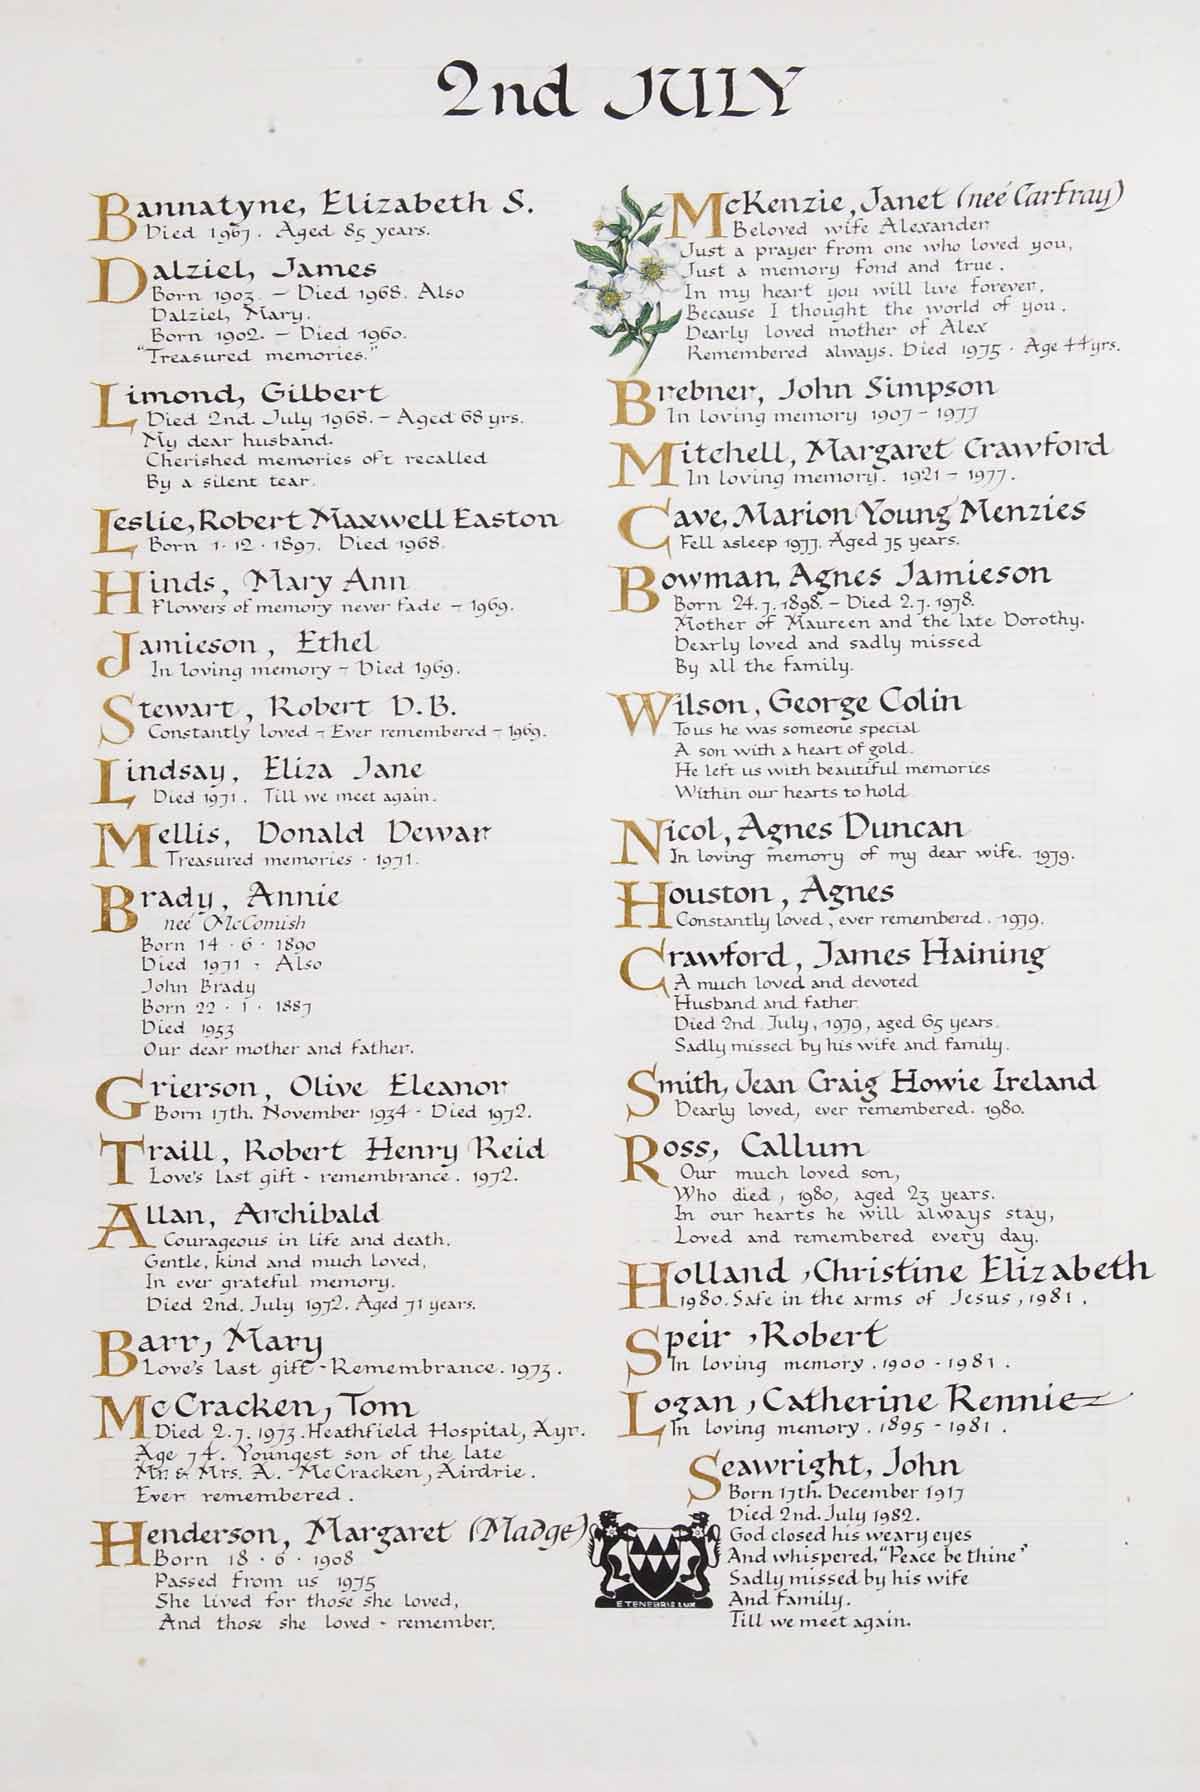 2nd JULY
Bannatyne, Elizabeth S.
Died 1967. Aged 85 years.
Dalziel, James
Born 1903. – Died 1968. Also
Dalziel, Mary.
Born 1902. – Died 1960.
"Treasured memories."
Limond, Gilbert
Died 2nd. July 1968. – Aged 68 yrs.
My dear husband.
Cherished memories oft recalled
By a silent tear.
Leslie, Robert Maxwell Easton
Born 1·12·1897. Died 1968.
Hinds, Mary Ann
Flowers of memory never fade – 1969.
Jamieson, Ethel
In loving memory – Died 1969.
Stewart, Robert D.B.
Constantly loved – Ever remembered – 1969.
Lindsay, Eliza Jane
Died 1971. Till we meet again.
Mellis, Donald Dewar
Treasured memories · 1971.
Brady, Annie
neé McComish
Born 14·6·1890
Died 1971 · Also
John Brady
Born 22·1·1887
Died 1953
Our dear mother and father.
Grierson, Olive Eleanor
Born 17th. November 1934 · Died 1972.
Traill, Robert Henry Reid
Love's last gift - remembrance. 1972.
Allan, Archibald
Courageous in life and death,
Gentle, kind and much loved,
In ever grateful memory.
Died 2nd. July 1972. Aged 71 years.
Barr, Mary
Love's last gift - Remembrance. 1973.
McCracken, Tom
Died 2.7.1973. Heathfield Hospital, Ayr.
Age 74. Youngest son of the late
Mr. & Mrs. A. McCracken, Airdrie.
Ever remembered.
Henderson, Margaret (Madge)
Born 18·6·1908
Passed from us 1975
She lived for those she loved,
And those she loved - remember.
McKenzie, Janet (neé Carfray)
Beloved wife Alexander
Just a prayer from one who loved you,
Just a memory fond and true.
In my heart you will live forever,
Because I thought the world of you.
Dearly loved mother of Alex
Remembered always. Died 1975 · Age 44 yrs.
Brebner, John Simpson
In loving memory 1907 – 1977
Mitchell, Margaret Crawford
In loving memory. 1921 – 1977.
Cave, Marion Young Menzies
Fell asleep 1977. Aged 75 years.
Bowman, Agnes Jamieson
Born 24.7.1898. – Died 2.7.1978.
Mother of Maureen and the late Dorothy.
Dearly loved and sadly missed
By all the family.
Wilson, George Colin
To us he was someone special
A son with a heart of gold.
He left us with beautiful memories
Within our hearts to hold
Nicol, Agnes Duncan
In loving memory of my dear wife. 1979.
Houston, Agnes
Constantly loved, ever remembered. 1979.
Crawford, James Haining
A much loved and devoted
Husband and father.
Died 2nd. July, 1979, aged 65 years.
Sadly missed by his wife and family.
Smith, Jean Craig Howie Ireland
Dearly loved, ever remembered. 1980.
Ross, Callum
Our much loved son,
Who died, 1980, aged 23 years.
In our hearts he will always stay,
Loved and remembered every day.
Holland, Christine Elizabeth
1980. Safe in the arms of Jesus, 1981.
Speir, Robert
In loving memory. 1900 - 1981.
Logan, Catherine Rennie
In loving memory. 1895 - 1981.
Seawright, John
Born 17th. December 1917
Died 2nd. July 1982.
God closed his weary eyes
And whispered, "Peace be thine"
Sadly missed by his wife
And family.
Till we meet again.
E TENEBRIS LUX